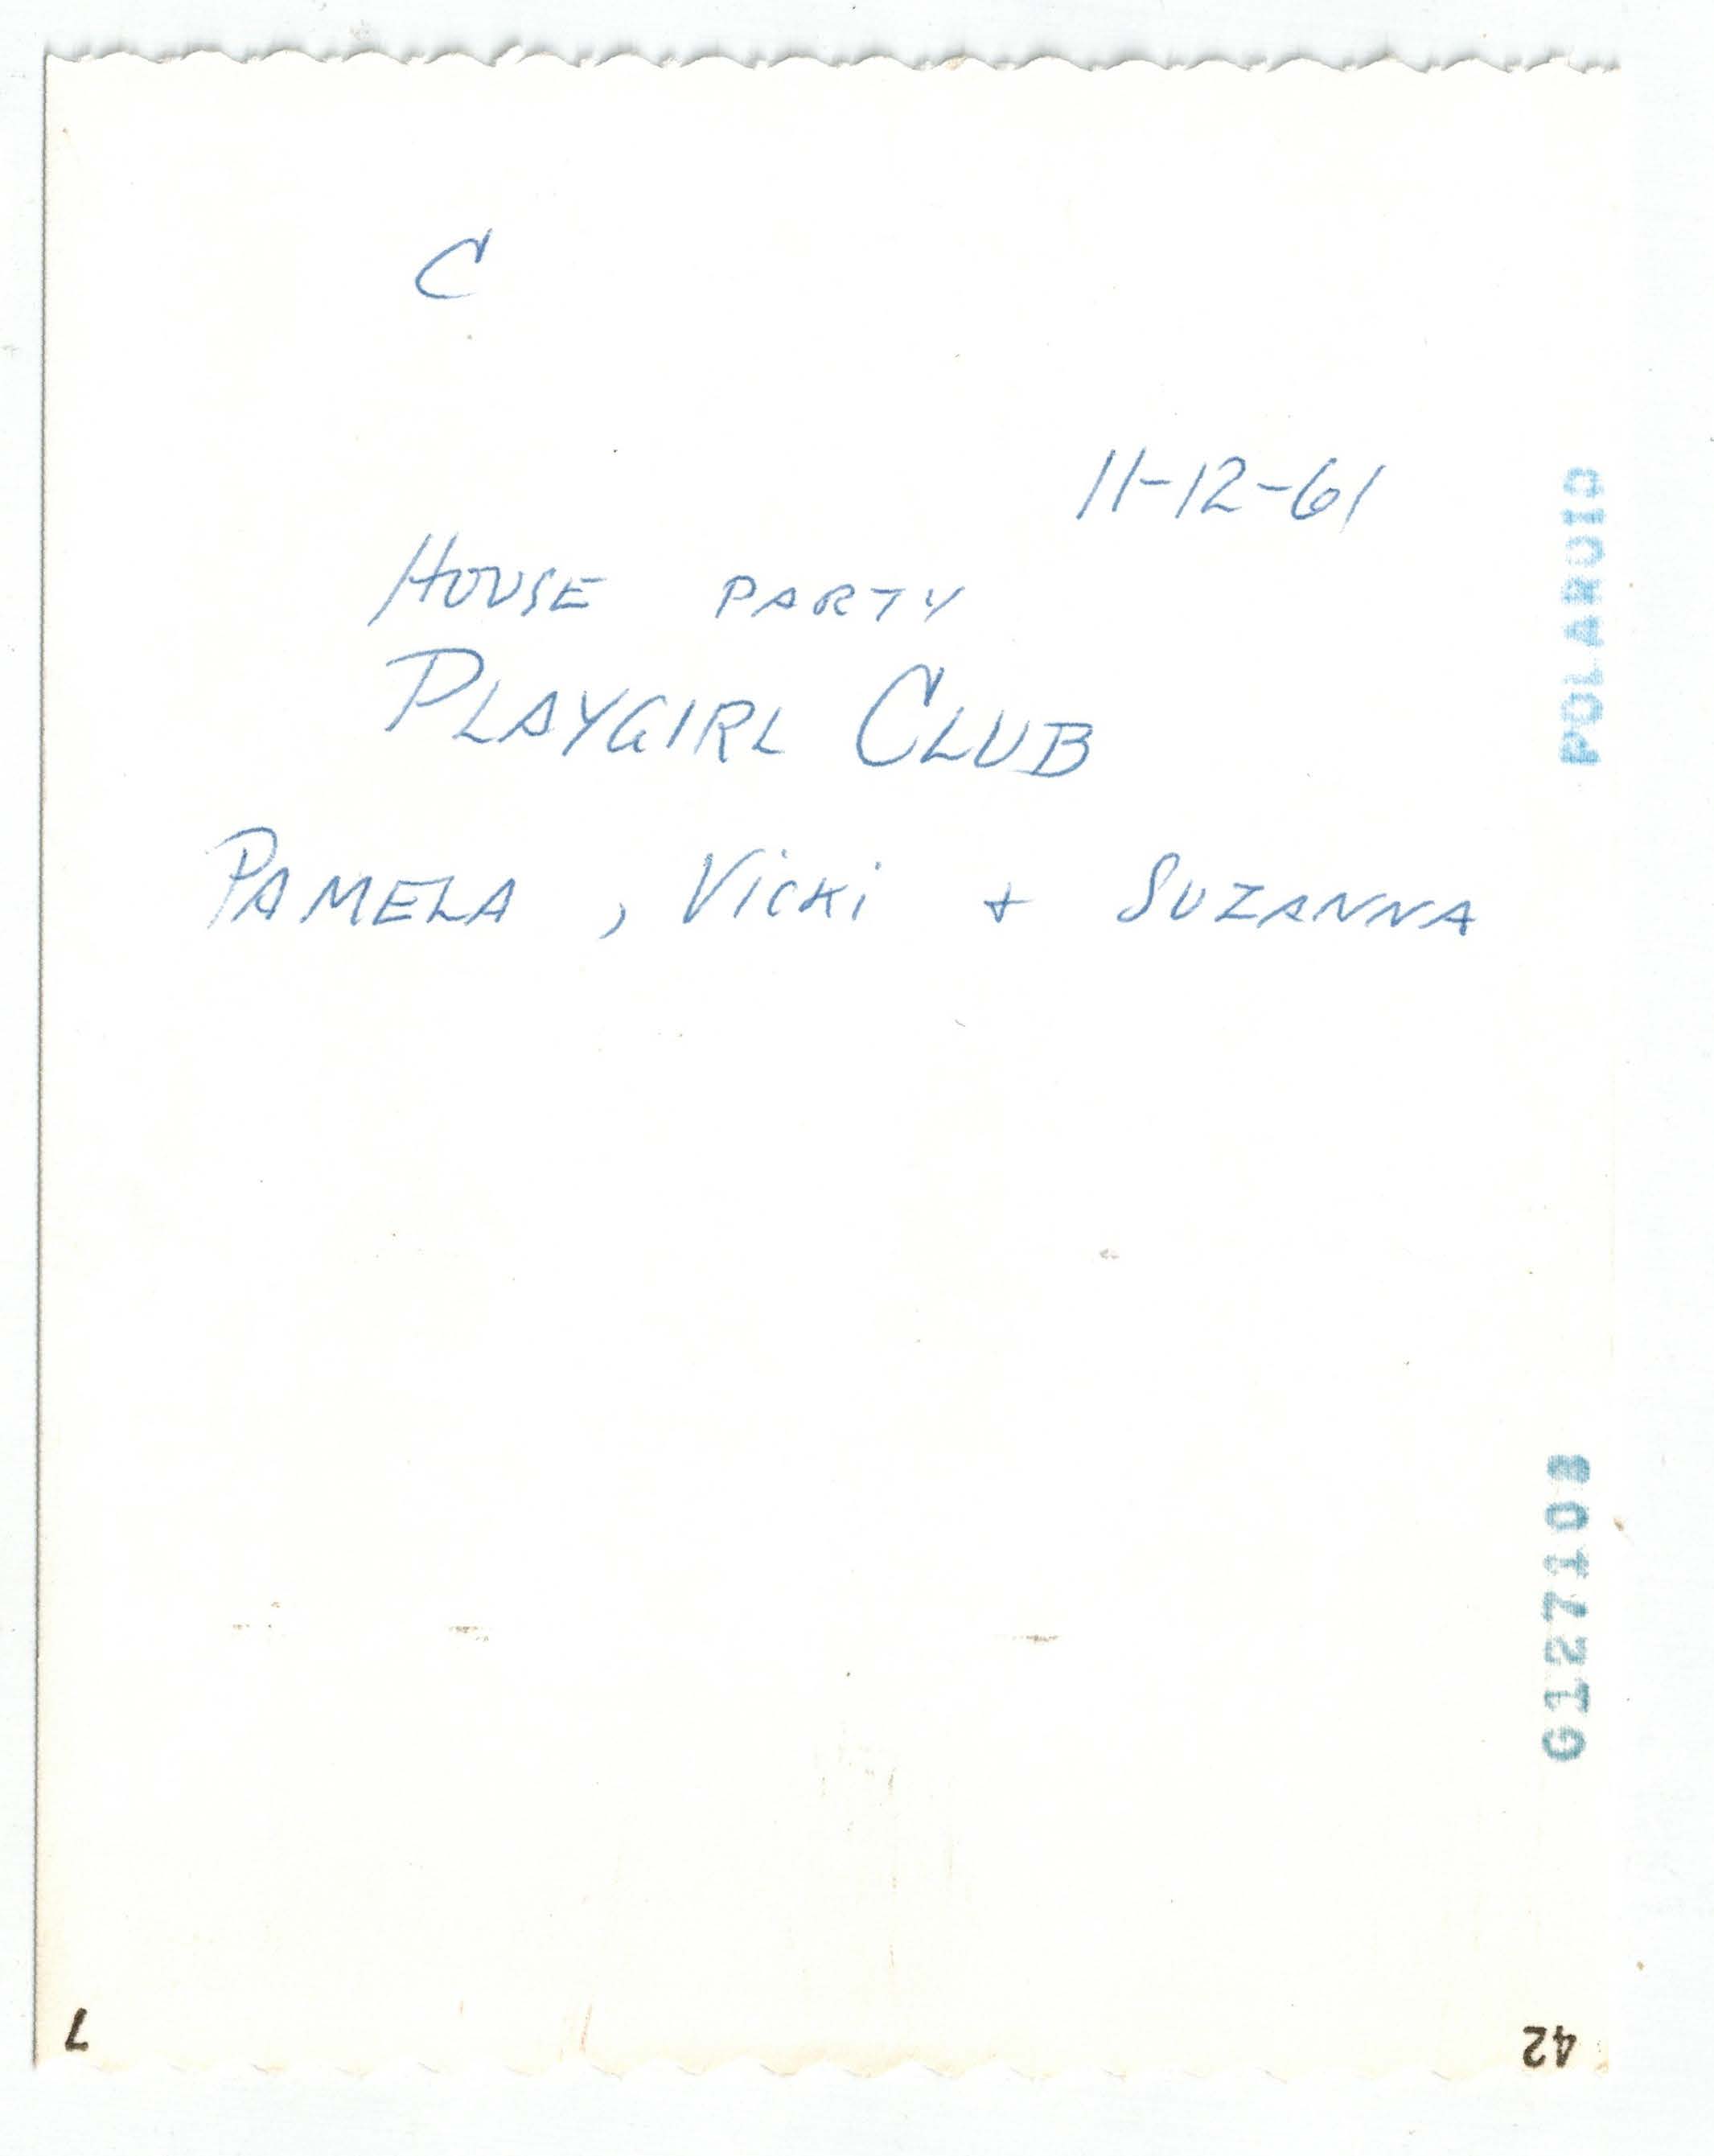 C
11-12-61
HOUSE PARTY
PLAYGIRL CLUB
PAMELA, VICKI + SUZANNA
POLAROID
G127103
7
42